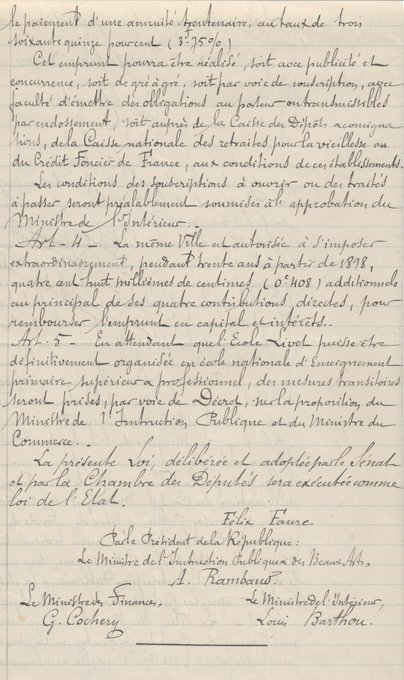 le paiement d'une annuité trentenaire, au taux de trois
soixante quinze pour cent (3f75%)
Cet emprunt pourra être réalisé, soit avec publicité et
concurrence, soit de gré à gré, soit par voie de souscription, avec
faculté d'émettre des obligations au porteur ou transmissibles
par endossement, soit auprès de la Caisse des Dépôts & consigna
tions, de la Caisse nationale des retraites pour la vieillesse ou
du Crédit Foncier de France, aux conditions de ces établissements.
Les conditions des souscriptions à ouvrir ou des traités
à passer seront préalablement soumises à l'approbation du
Ministre de l'Intérieur.
Art - 4 - La même Ville est autorisée à s'imposer
extraordinairement, pendant trente ans à partir de 1898,
quatre cent huit millièmes de centimes (0c408) additionnels
au principal de ses quatre contributions directes, pour
rembourser l'emprunt en capital et intérêts..
Art. 5 - En attendant que l'Ecole Livet puisse être
définitivement organisée en école nationale d'Enseignement
primaire supérieur & professionnel, des mesures transitoires
seront prises, par voie de Décret, sur la proposition du
Ministre de l'Instruction Publique et du Ministre du
Commerce. -
La présente Loi, délibérée et adoptée par le Sénat
et par la Chambre des Députés sera exécutée comme
loi de l'Etat.
Félix Faure
Par le Président de la République:
Le Ministre de l'Instruction Publique & des Beaux Arts,
A. Rambaud
Le Ministre des Finances,
G. Cochery
Le Ministre de l'Intérieur,
Louis Barthou.